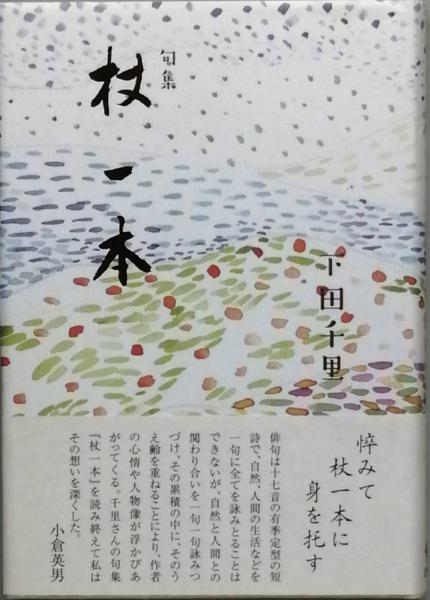 句集
杖一本
下田千里
悴みて
杖一本に
身を托す
俳句は十七音の有季定型の短
詩で、自然、人間の生活などを
一句に全てを詠みとることは
できないが、自然と人間との
関わり合いを一句一句詠みつ
づけ、その累積の中に、そのう
え齢を重ねることにより、作者
の心情や人物像が浮かびあ
がってくる。千里さんの句集
『杖一本』を読み終えて私は
その想いを深くした。
小倉英男